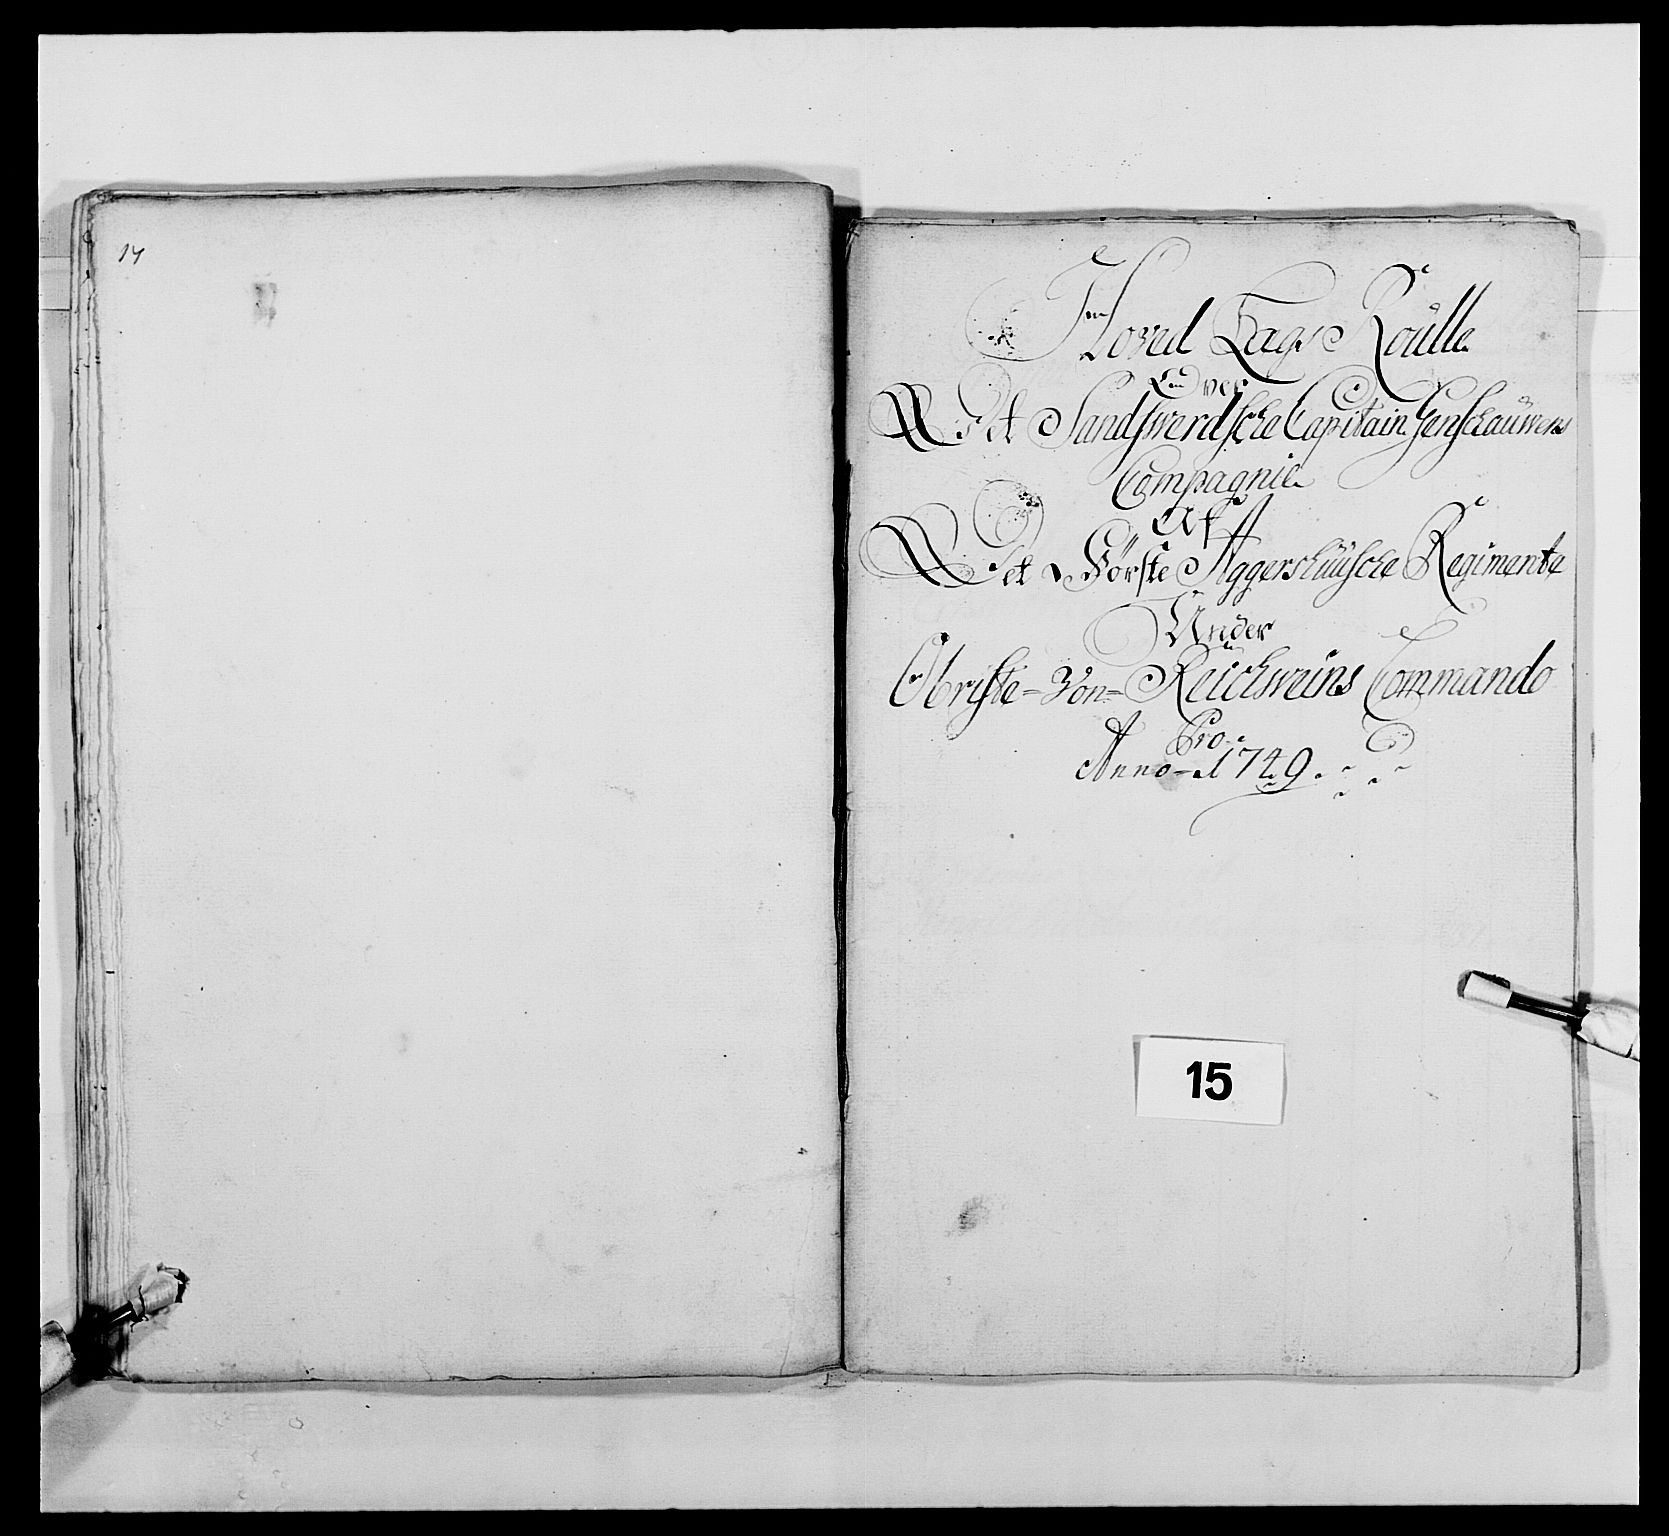 14
Hoved Lags Roulle
Over
Det Sandswerdsche Capitain Genschauwens
Compagnie
Af
Det Första Aggershuusche Regimente
Under
Obriste-Von-Reichweins Commando
Pro
Anno 1749.
15